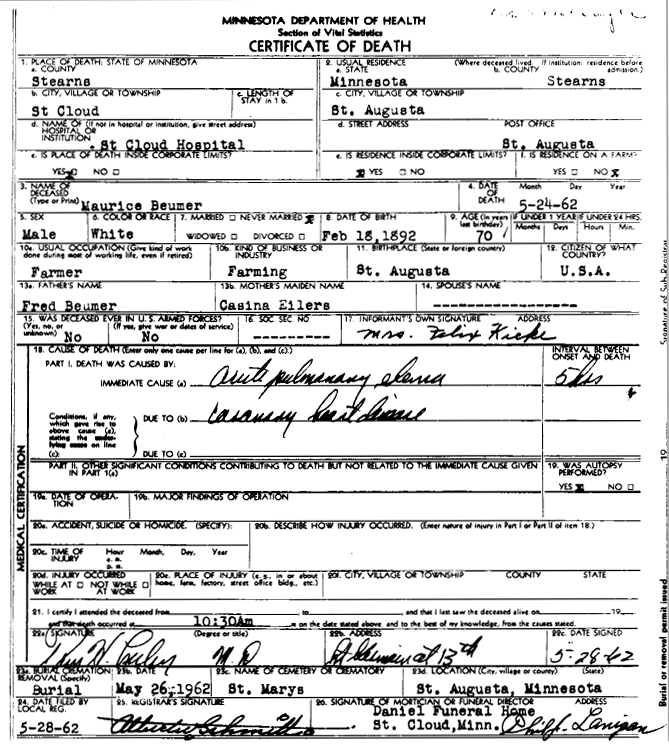 MINNESOTA DEPARTMENT OF HEALTH
Section of Vital Statistics
CERTIFICATE OF DEATH
1. PLACE OF DEATH: STATE OF MINNESOTA
a. COUNTY
Stearns
2. USUAL RESIDENCE (Where deceased lived. If institution: residence before admission.)
a. STATE b. COUNTY
Minnesota Stearns
b. CITY, VILLAGE OR TOWNSHIP c. LENGTH OF STAY in 1 b.
St Cloud
c. CITY, VILLAGE OR TOWNSHIP
St. Augusta
d. NAME OF (If not in hospital or institution, give street address)
HOSPITAL OR
INSTITUTION . St Cloud Hospital
d. STREET ADDRESS POST OFFICE
St. Augusta
e. IS PLACE OF DEATH INSIDE CORPORATE LIMITS?
YES NO
e. IS RESIDENCE INSIDE CORPORATE LIMITS? f. IS RESIDENCE ON A FARM?
YES NO YES NO X
3. NAME OF DECEASED (Type or Print) Maurice Beumer
4. DATE OF DEATH Month Day Year
5-24-62
5. SEX 6. COLOR OR RACE 7. MARRIED NEVER MARRIED X 8. DATE OF BIRTH 9. AGE (in years last birthday) IF UNDER 1 YEAR IF UNDER 24 HRS.
Months Days Hours Min.
Male White WIDOWED DIVORCED Feb 18,1892 70
10a. USUAL OCCUPATION (Give kind of work done during most of working life, even if retired) 10b. KIND OF BUSINESS OR INDUSTRY 11. BIRTHPLACE (State or foreign country) 12. CITIZEN OF WHAT COUNTRY?
Farmer Farming St. Augusta U.S.A.
13a. FATHER'S NAME 13b. MOTHER'S MAIDEN NAME 14. SPOUSE'S NAME
Fred Beumer Casina Eilers ----------------
15. WAS DECEASED EVER IN U.S. ARMED FORCES? 16. SOC SEC NO 17. INFORMANT'S OWN SIGNATURE ADDRESS
(Yes, no, or unknown) No (If yes, give war or dates of service) No --------- Mrs. Felix
18. CAUSE OF DEATH (Enter only one cause per line for (a), (b), and (c).) INTERVAL BETWEEN ONSET AND DEATH
PART I. DEATH WAS CAUSED BY:
IMMEDIATE CAUSE (a) acute pulmonary edema 5 hrs
Conditions, if any, which gave rise to above cause (a), stating the underlying cause on line (c):
DUE TO (b) coronary heart disease
DUE TO (c)
MEDICAL CERTIFICATION
PART II. OTHER SIGNIFICANT CONDITIONS CONTRIBUTING TO DEATH BUT NOT RELATED TO THE IMMEDIATE CAUSE GIVEN IN PART 1(a)
19. WAS AUTOPSY PERFORMED?
YES X NO
19a. DATE OF OPERATION 19b. MAJOR FINDINGS OF OPERATION
20a. ACCIDENT, SUICIDE OR HOMICIDE. (SPECIFY): 20b. DESCRIBE HOW INJURY OCCURRED. (Enter nature of injury in Part I or Part II of item 18.)
20c. TIME OF INJURY Hour a.m. p.m. Month, Day, Year
20d. INJURY OCCURRED WHILE AT WORK NOT WHILE AT WORK 20e. PLACE OF INJURY (e.g., in or about home, farm, factory, street office bldg., etc.) 20f. CITY, VILLAGE OR TOWNSHIP COUNTY STATE
21. I certify I attended the deceased from to and that I last saw the deceased alive on 19
and that death occurred at 10:30Am m on the date stated above and to the best of my knowledge, from the causes stated.
22a. SIGNATURE (Degree or title) 22b. ADDRESS 22c. DATE SIGNED
M.D. at 13th 5-28-62
23a. BURIAL CREMATION REMOVAL (Specify) 23b. DATE 23c. NAME OF CEMETERY OR CREMATORY 23d. LOCATION (City, village or county) (State)
Burial May 26,1962 St. Marys St. Augusta, Minnesota
24. DATE FILED BY LOCAL REG. 25. REGISTRAR'S SIGNATURE 26. SIGNATURE OF MORTICIAN OR FUNERAL DIRECTOR ADDRESS
Daniel Funeral Home
5-28-62 St. Cloud, Minn. Phil J. Lanigan
Signature of Sub-Registrar
19
Burial or removal permit issued